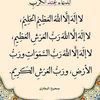 الدعاء عند الكرب
لَا إِلَهَ إِلَّا اللَّهُ الْعَظِيمُ الْحَلِيمُ،
لَا إِلَهَ إِلَّا اللَّهُ رَبُّ الْعَرْشِ الْعَظِيمِ،
لَا إِلَهَ إِلَّا اللَّهُ رَبُّ السَّمَوَاتِ وَرَبُّ
الْأَرْضِ، وَرَبُّ الْعَرْشِ الْكَرِيمِ.
صحيح البخاري